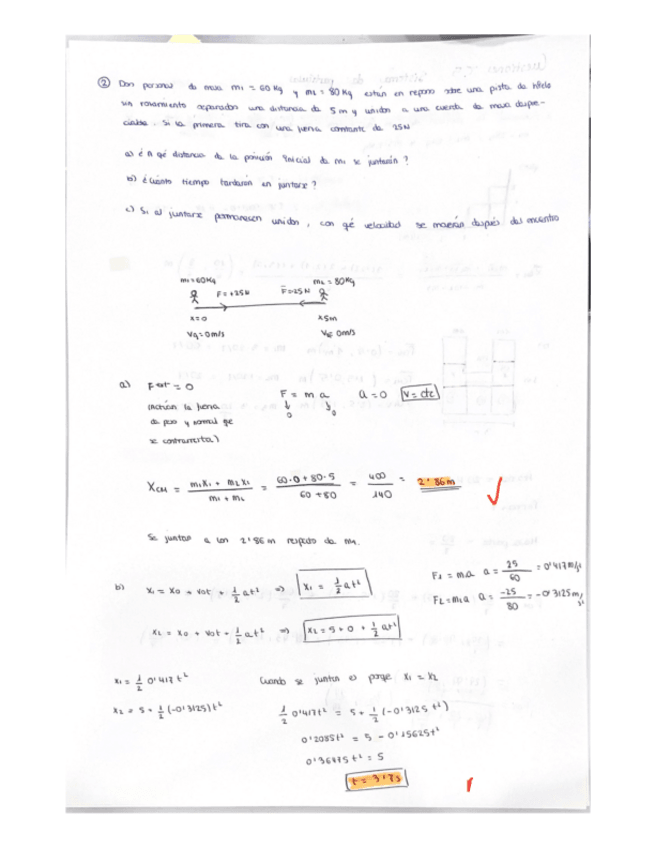 ② Dos personas de masa m₁ = 60 Kg y m₂ = 80 Kg están en reposo sobre una pista de hielo
sin rozamiento separados una distancia de 5 m y unidos a una cuerda de masa despre-
ciable. Si la primera tira con una fuerza constante de 25N
a) ¿A qé distancia de la posición inicial de m₁ se juntarán?
b) ¿Cuánto tiempo tardarán en juntarse?
c) Si al juntarse permanecen unidos, con qé velocidad se moverán después del encuentro
m₁=60Kg m₂=80Kg
F=+25N F=-25N
x=0 x5m
V₁=0m/s 0m/s
a) Fext = 0 F = m a a=0 V=cte
la fuerza 0 0
de peso y normal qe
se contrarresta)
XCM = m₁x₁ + m₂x₁ / m₁ + m₂ = 60·0 + 80·5 / 60 + 80 = 400 / 140 = 2'86m
Se juntan a los 2'86 m respecto de m₁.
F₁ = m₁a a = 25/60 = 0'417m/s²
b) x₁ = x₀ + v₀t + 1/2 at² => x₁ = 1/2 at²
F₂=m₂a a = -25/80 = -0'3125m/s²
x₂ = x₀ + v₀t + 1/2 at² => x₂ = 5 + 0 + 1/2 at²
x₁ = 1/2 0'417 t² Cuando se juntan es porqe x₁ = x₂
x₂ = 5 + 1/2 (-0'3125)t² 1/2 0'417t² = 5 + 1/2 (-0'3125 t²)
0'2085t² = 5 - 0'15625t²
0'36475 t² = 5
t = 3'7s